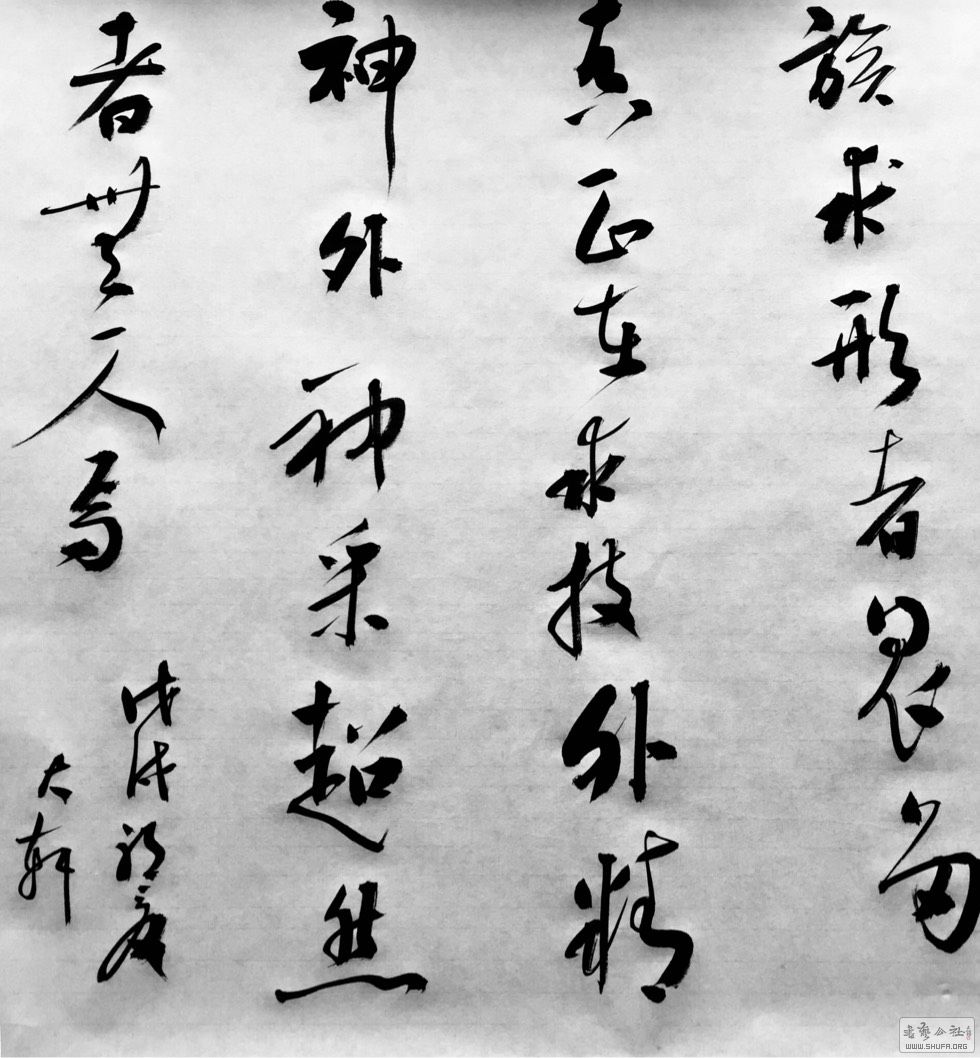 族求形者
真正在求技外精
神外神采超然
者無一人焉
戊戌初夏
大軒
書藝公社
WWW.SHUFA.ORG